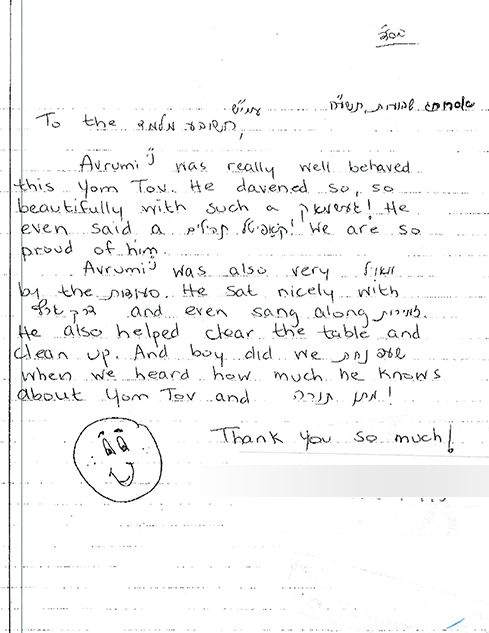 בס"ד
אסרו חג שבועות,
עמו"ש
To the חשוב'ע מלמד,
Avrumi נ"י was really well behaved
this Yom Tov. He davened so, so
beautifully with such a געשמאק! He
even said a קאפיטל תהלים! We are so
proud of him.
Avrumi נ"י was also very וואויל
by the סעודות. He sat nicely with
דרך ארץ and even sang along זמירות.
He also helped clear the table and
clean up. And boy did we שעפ נחת
when we heard how much he knows
about Yom Tov and מתן תורה!
Thank you so much!